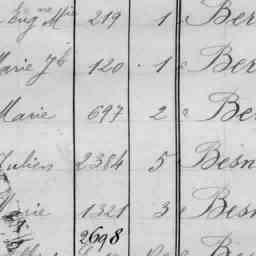 Eug.ne Mie 219 1 Ber
Marie Jh 120 1 Ber
Marie 697 2 Be
Julien 2384 5 Besn
Marie 1321 3 Besn
2698